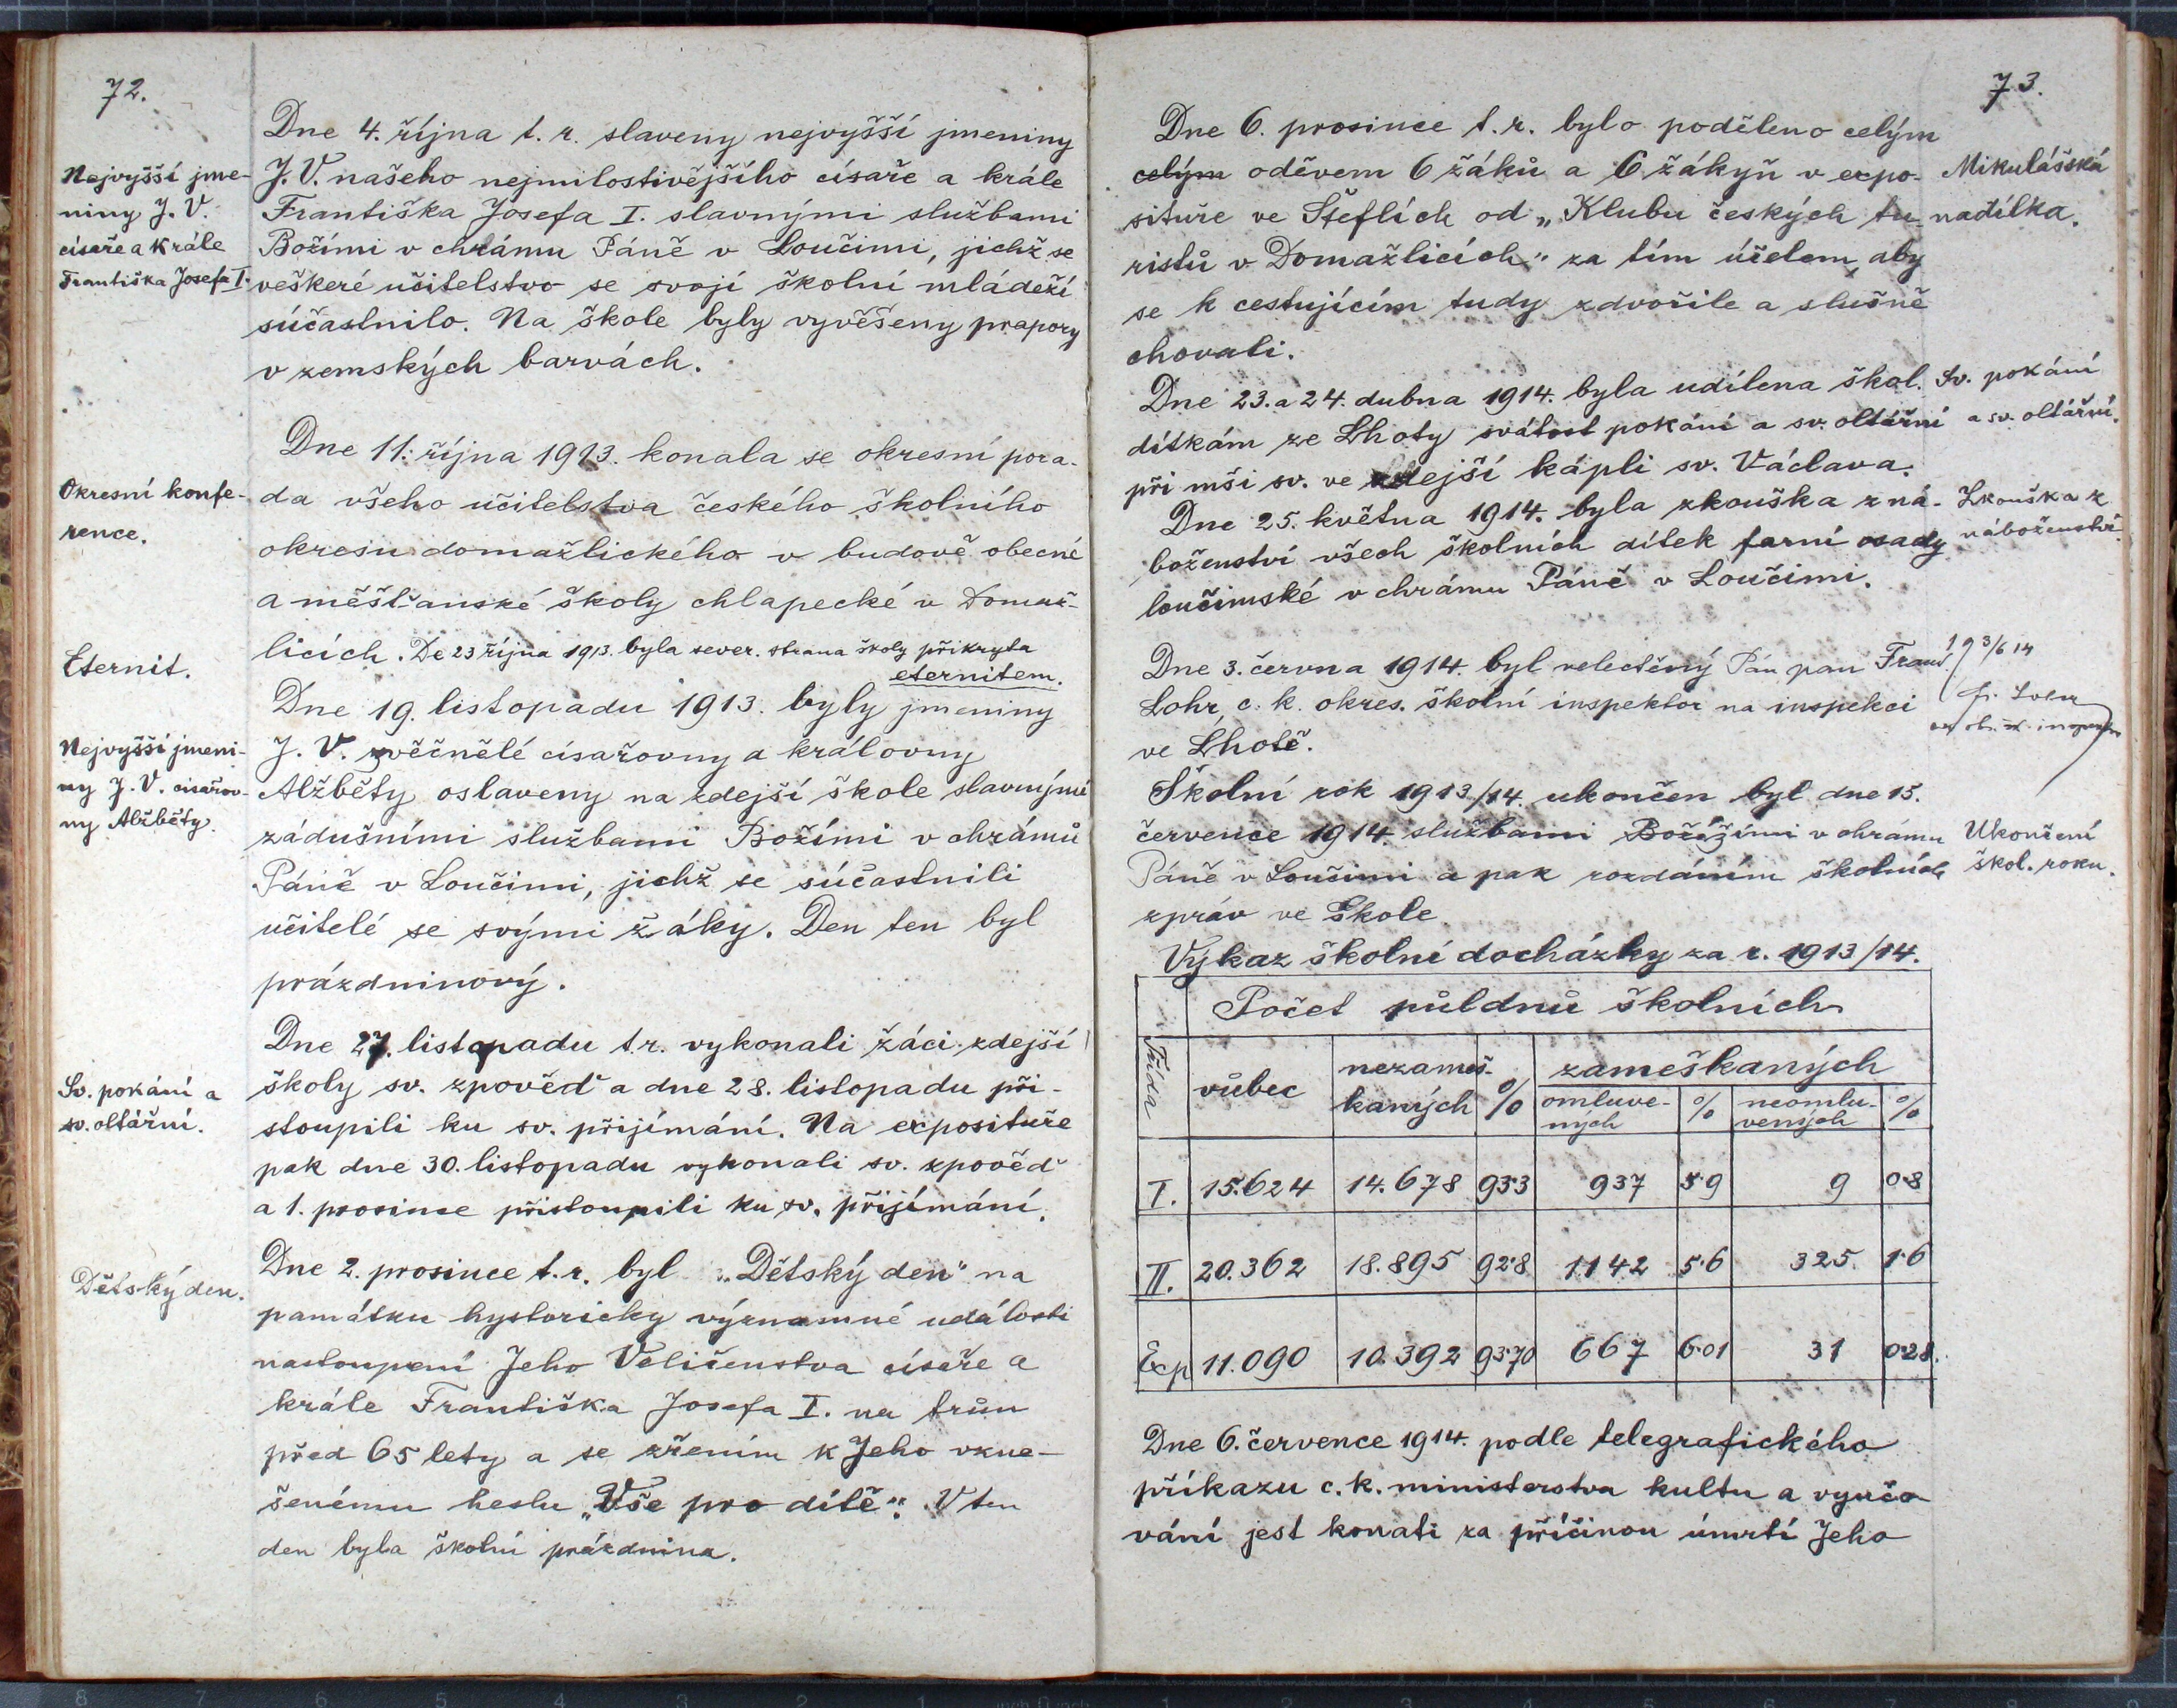 72.
Dne 4. října t. r. slaveny nejvyšší jmeniny
Nejvyšší jme-
niny J. V.
císaře a krále
Františka Josefa I.
J. V. našeho nejmilostivějšího císaře a krále
Františka Josefa I. slavnými službami
Božími v chrámu Páně v Loučimi, jichž se
veškeré učitelstvo se svojí školní mládeží
súčastnilo. Na škole byly vyvěšeny prapory
v zemských barvách.
Dne 11. října 1913. konala se okresní pora-
Okresní konfe-
rence.
da všeho učitelstva českého školního
okresu domažlického v budově obecné
a měšťanské školy chlapecké v Domaž-
licích. De 23 října 1913. byla sever. strana školy přikryta
eternitem.
Eternit.
Dne 19. listopadu 1913. byly jmeniny
Nejvyšší jmeni-
ny J. V. císařov-
ny Alžběty.
J. V. zvěčnělé císařovny a královny
Alžběty oslaveny na zdejší škole slavnými
zádušními službami Božími v chrámů
Páně v Loučimi, jichž se súčastnili
učitelé se svými žáky. Den ten byl
prázdninový.
Dne 27. listopadu t.r. vykonali žáci zdejší
Sv. pokání a
sv. oltářní.
školy sv. zpověď a dne 28. listopadu při-
stoupili ku sv. přijímání. Na exposituře
pak dne 30. listopadu vykonali sv. zpověď
a 1. prosince přistoupili ku sv. přijímání.
Dne 2. prosince t. r. byl „Dětský den" na
Dětský den.
památku hystoricky významné události
nastoupení Jeho Veličenstva císaře a
krále Františka Josefa I. na trůn
před 65 lety a se zřením k Jeho vzne-
šenému heslu „Vše pro dítě". V ten
den byla školní prázdnina.
73.
Dne 6. prosince t. r. bylo poděleno celým
celým oděvem 6 žáků a 6 žákyň v expo-
Mikulášská
nadílka.
situře ve Šteflích od „Klubu českých tu-
ristů v Domažlicích" za tím účelem, aby
se k cestujícím tudy zdvořile a slušně
chovali.
Dne 23. a 24. dubna 1914. byla udílena škol.
Sv. pokání
a sv. oltářní.
dítkám ze Lhoty svátost pokání a sv. oltářní
při mši sv. ve zdejší kápli sv. Václava.
Dne 25. května 1914. byla zkouška z ná-
Zkouška z
náboženství.
boženství všech školních dítek farní osady
loučimské v chrámu Páně v Loučimi.
Dne 3. června 1914. byl velectěný Pán pan Frant.
Lohr, c. k. okres. školní inspektor na inspekci
ve Lhotě.
3/6 14
Školní rok 1913/14. ukončen byl dne 15.
července 1914. službami Božími v chrámu
Ukončení
škol. roku.
Páně v Loučimi a pak rozdáním školních
zpráv ve škole.
Výkaz školní docházky za r. 1913/14.
Třída
Počet půldnů školních
vůbec
nezameš-
kaných
%
zameškaných
omluve-
ných
%
neomlu-
vených
%
I. 15.624 14.678 93·3 937 5·9 9 0·8
II. 20.362 18.895 92·8 1142 5·6 325. 1·6
Exp 11.090 10.392 93·70 667 6·01 31 0·28.
Dne 6. července 1914. podle telegrafického
příkazu c. k. ministerstva kultu a vyučo-
vání jest konati za příčinou úmrtí Jeho